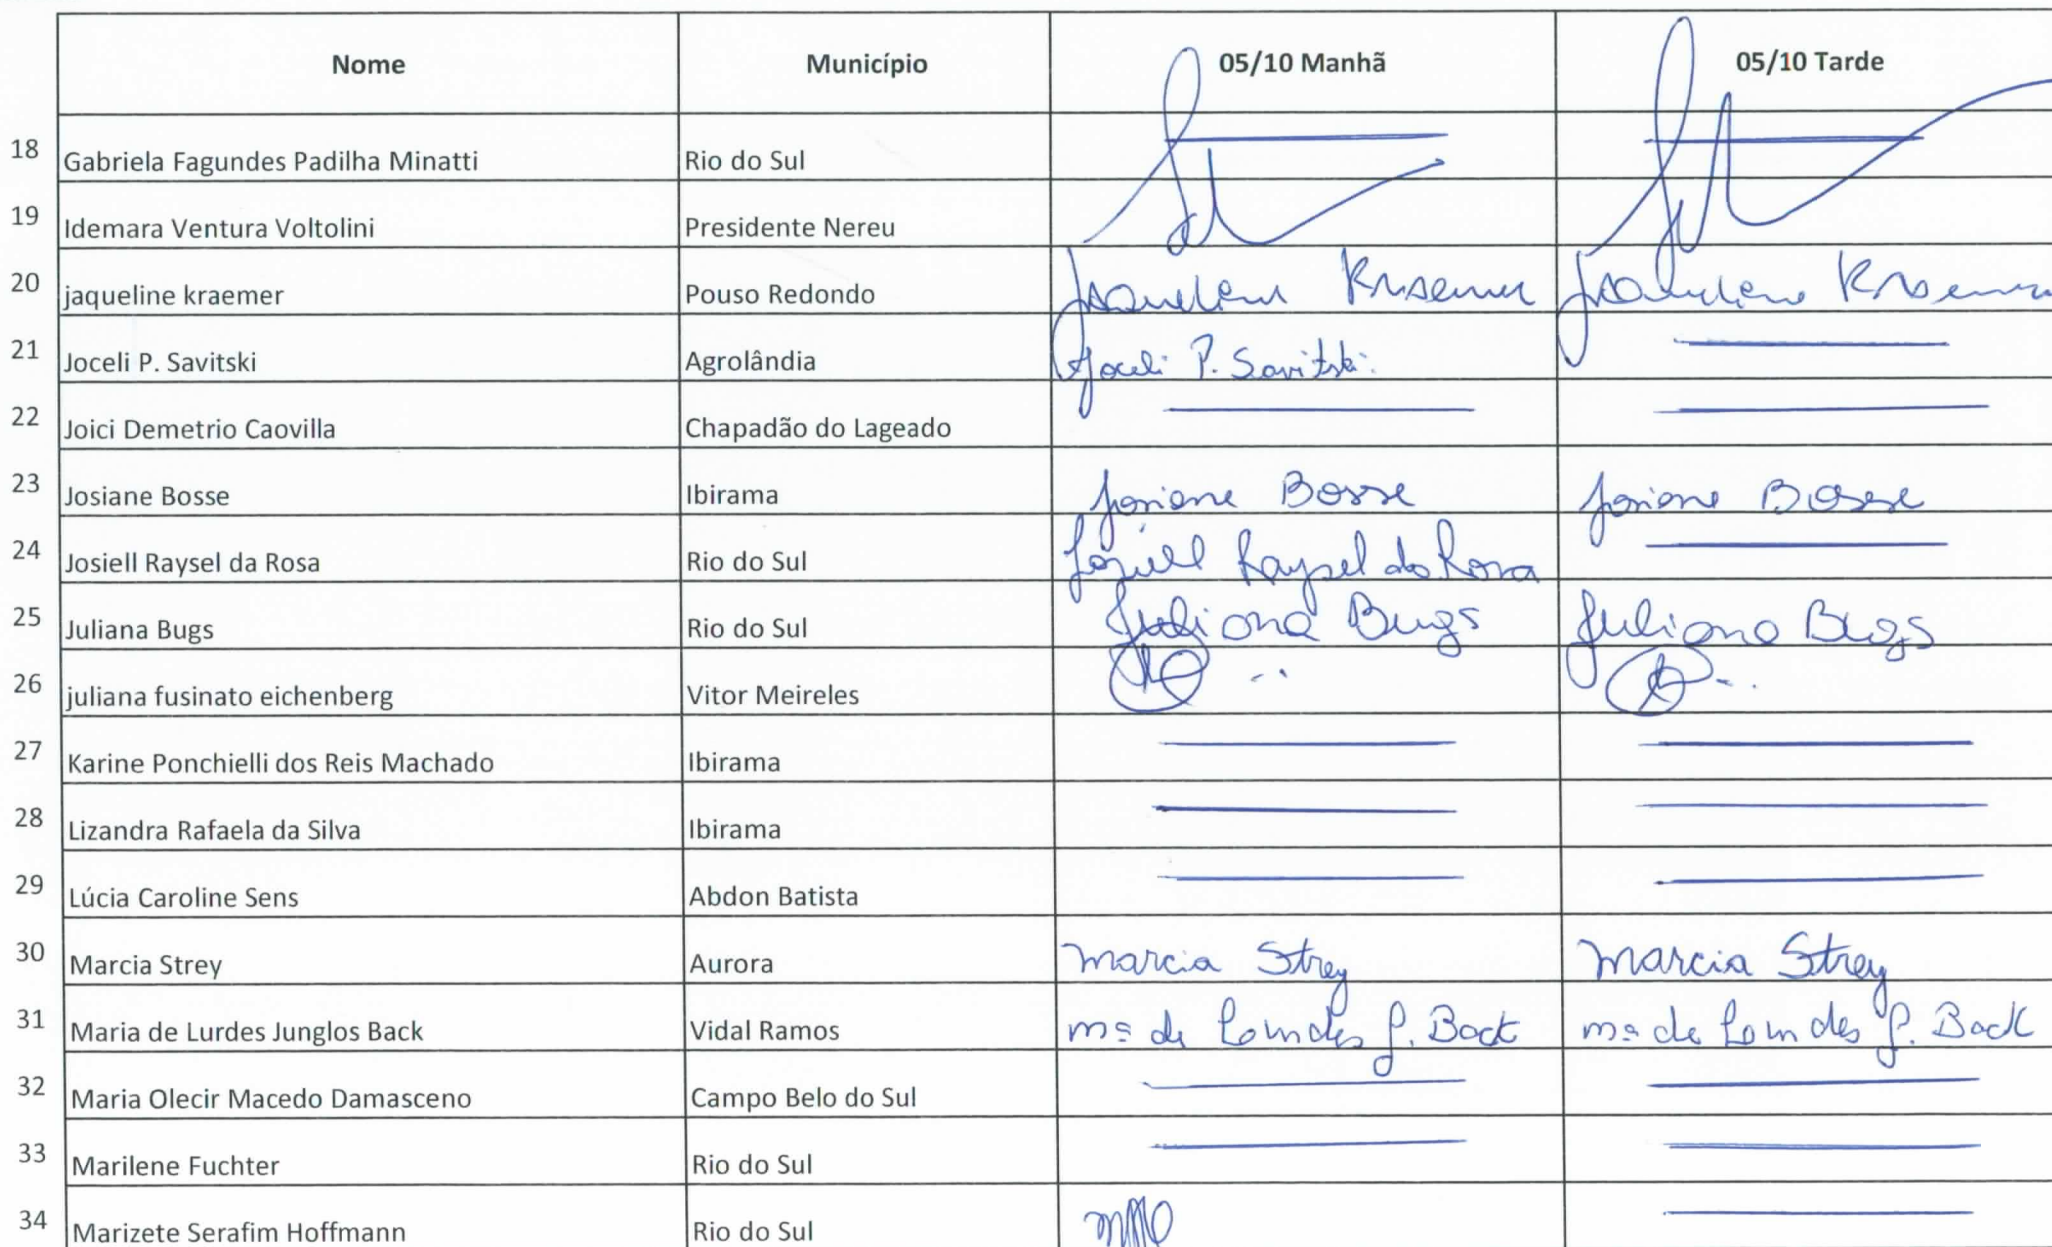 Nome Município 05/10 Manhã 05/10 Tarde
18 Gabriela Fagundes Padilha Minatti Rio do Sul
19 Idemara Ventura Voltolini Presidente Nereu
20 jaqueline kraemer Pouso Redondo Jaqueline Kraemer Jaqueline Kraemer
21 Joceli P. Savitski Agrolândia Joceli P. Savitski
22 Joici Demetrio Caovilla Chapadão do Lageado
23 Josiane Bosse Ibirama Josiane Bosse Josiane Bosse
24 Josiell Raysel da Rosa Rio do Sul Josiell Raysel da Rosa
25 Juliana Bugs Rio do Sul Juliana Bugs Juliana Bugs
26 juliana fusinato eichenberg Vitor Meireles
27 Karine Ponchielli dos Reis Machado Ibirama
28 Lizandra Rafaela da Silva Ibirama
29 Lúcia Caroline Sens Abdon Batista
30 Marcia Strey Aurora Marcia Strey Marcia Strey
31 Maria de Lurdes Junglos Back Vidal Ramos Mª de Lourdes J. Back Mª de Lourdes J. Back
32 Maria Olecir Macedo Damasceno Campo Belo do Sul
33 Marilene Fuchter Rio do Sul
34 Marizete Serafim Hoffmann Rio do Sul